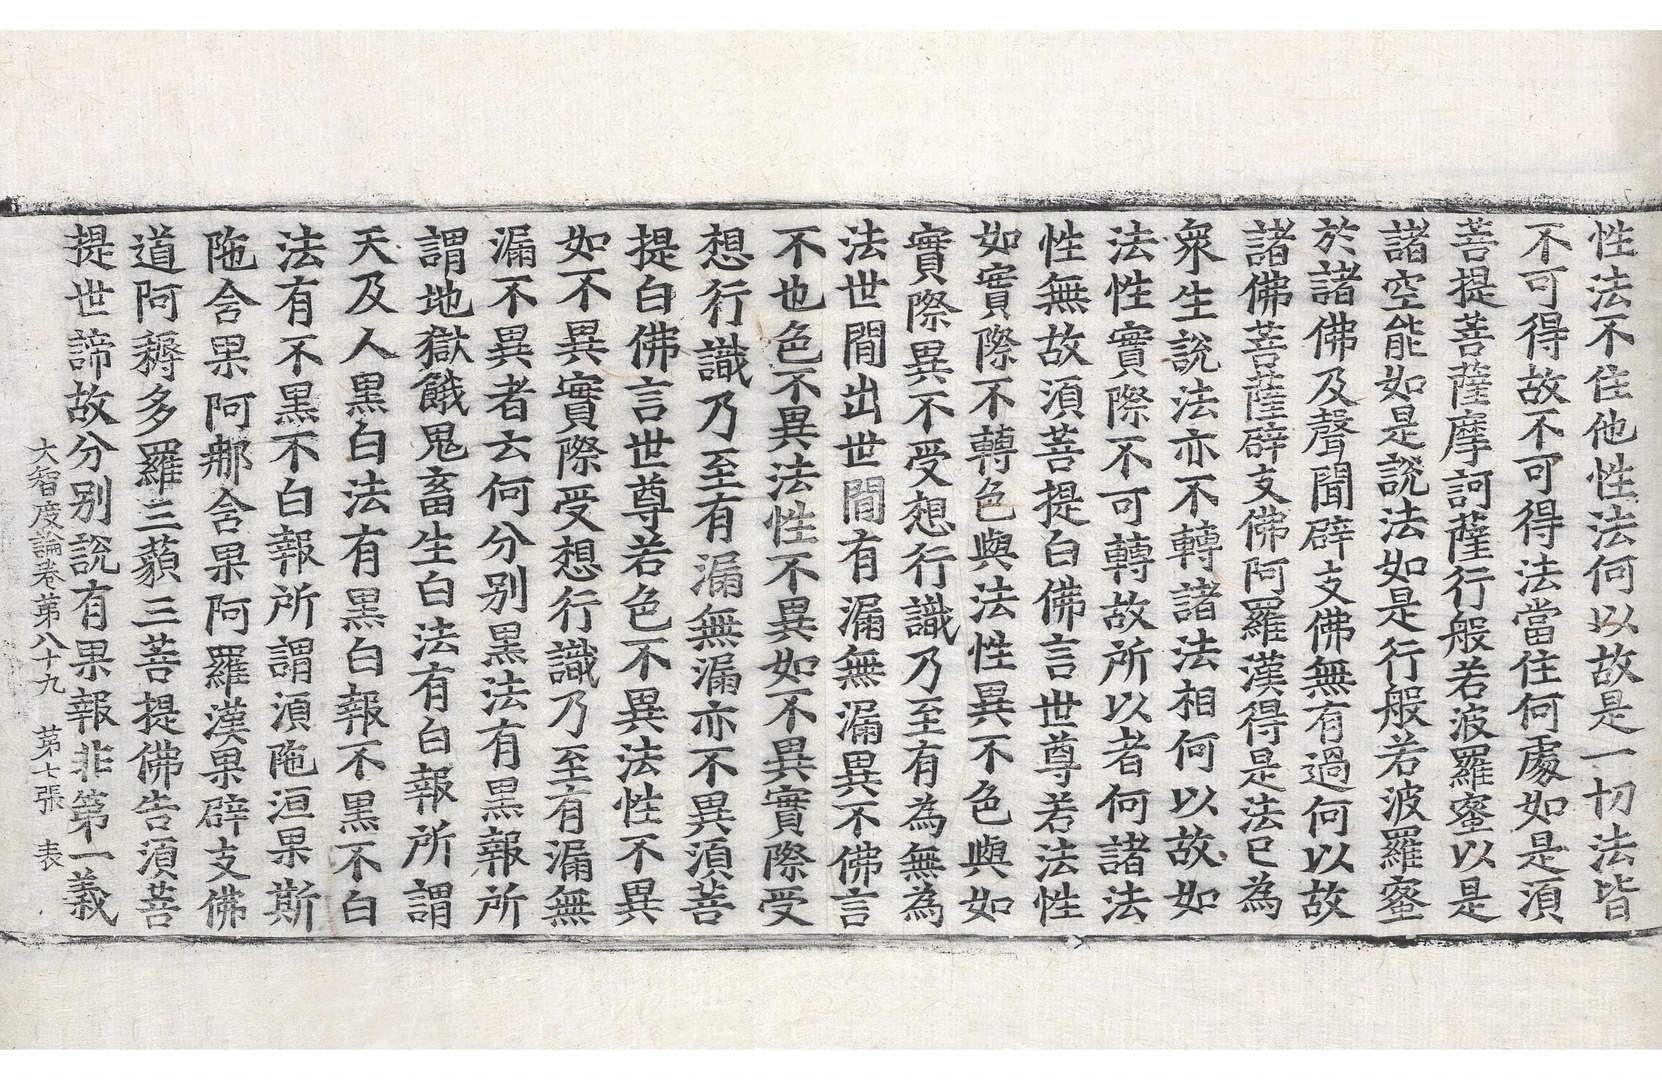 性法不住他性法何以故是一切法皆
不可得故不可得法當住何處如是湏
菩提菩薩摩訶薩行般若波羅蜜以是
諸空能如是說法如是行般若波羅蜜
於諸佛及聲聞辟支佛無有過何以故
諸佛菩薩辟支佛阿羅漢得是法已為
衆生說法亦不轉諸法相何以故如
法性實際不可轉故所以者何諸法
性無故湏菩提白佛言世尊若法性
如實際不轉色與法性異不色與如
實際異不受想行識乃至有為無為
法世間出世間有漏無漏異不佛言
不也色不異法性不異如不異實際受
想行識乃至有漏無漏亦不異湏菩
提白佛言世尊若色不異法性不異
如不異實際受想行識乃至有漏無
漏不異者云何分別黑法有黑報所
謂地獄餓鬼畜生白法有白報所謂
天及人黑白法有黑白報不黑不白
法有不黑不白報所謂湏陁洹果斯
陁含果阿那含果阿羅漢果辟支佛
道阿耨多羅三藐三菩提佛告湏菩
提世諦故分別說有果報非第一義
大智度論卷苐八十九 苐七張 表